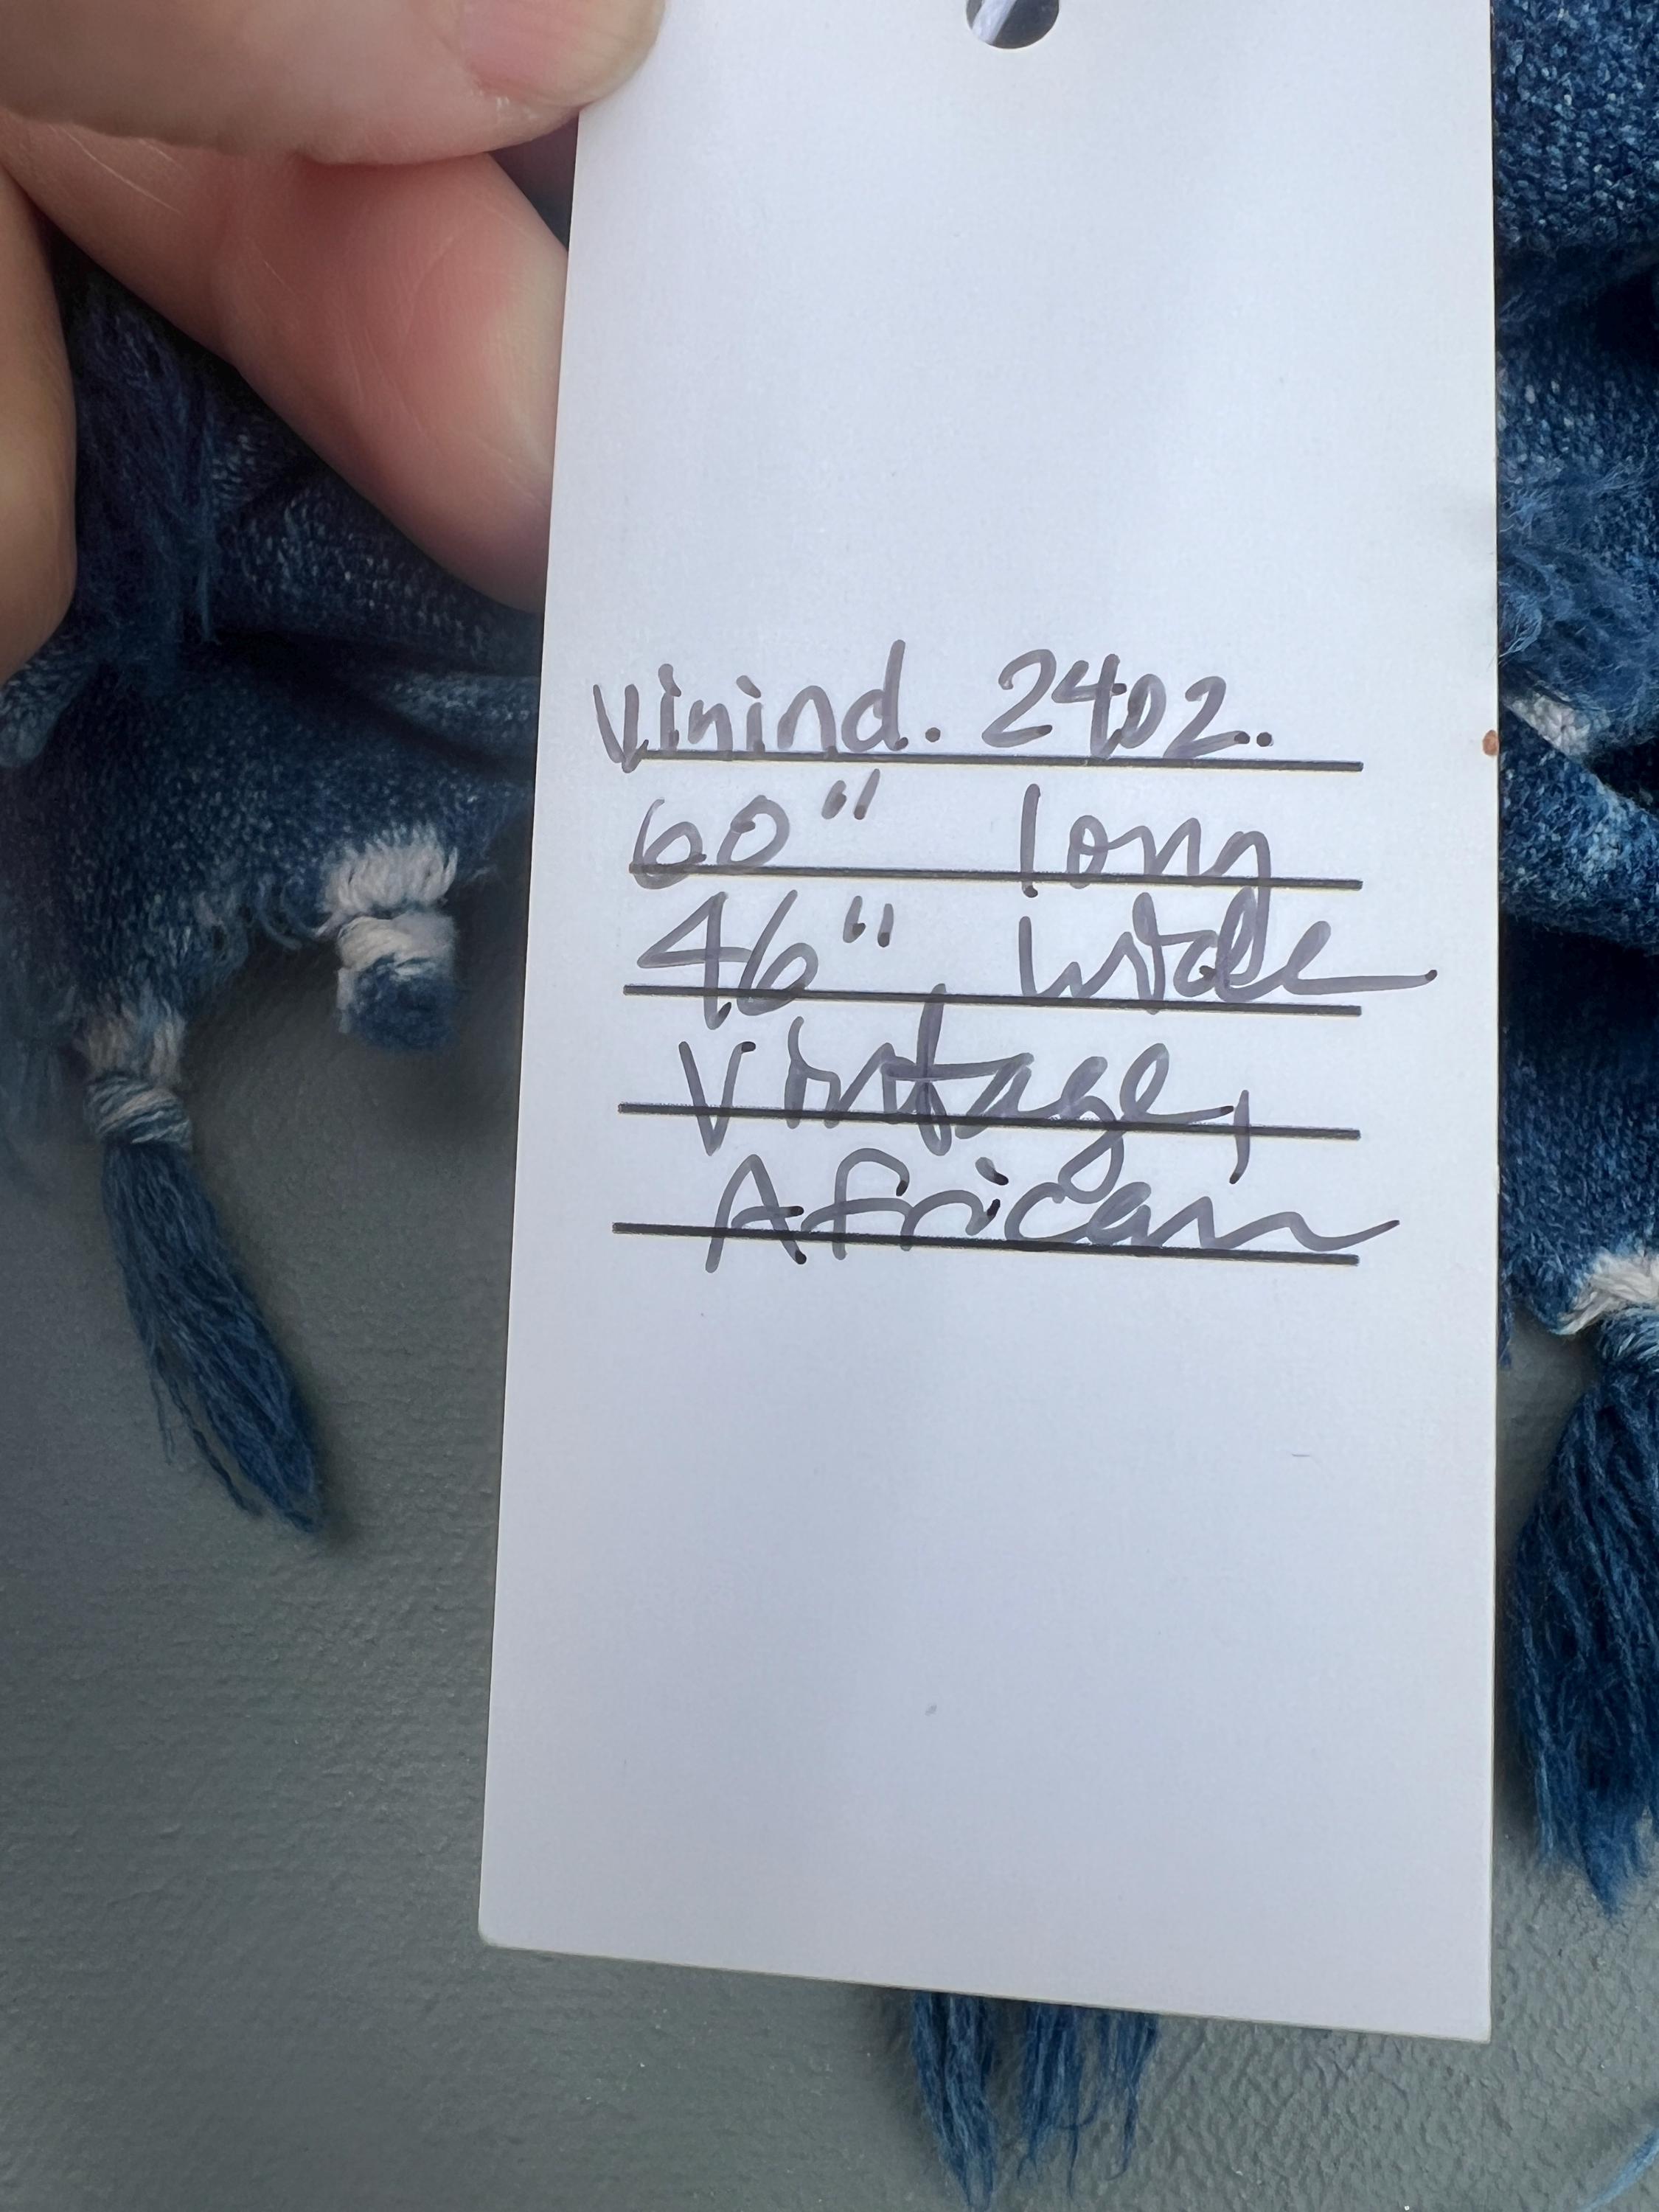 Vinind. 2402.
60" long
46" wide
Vintage,
African